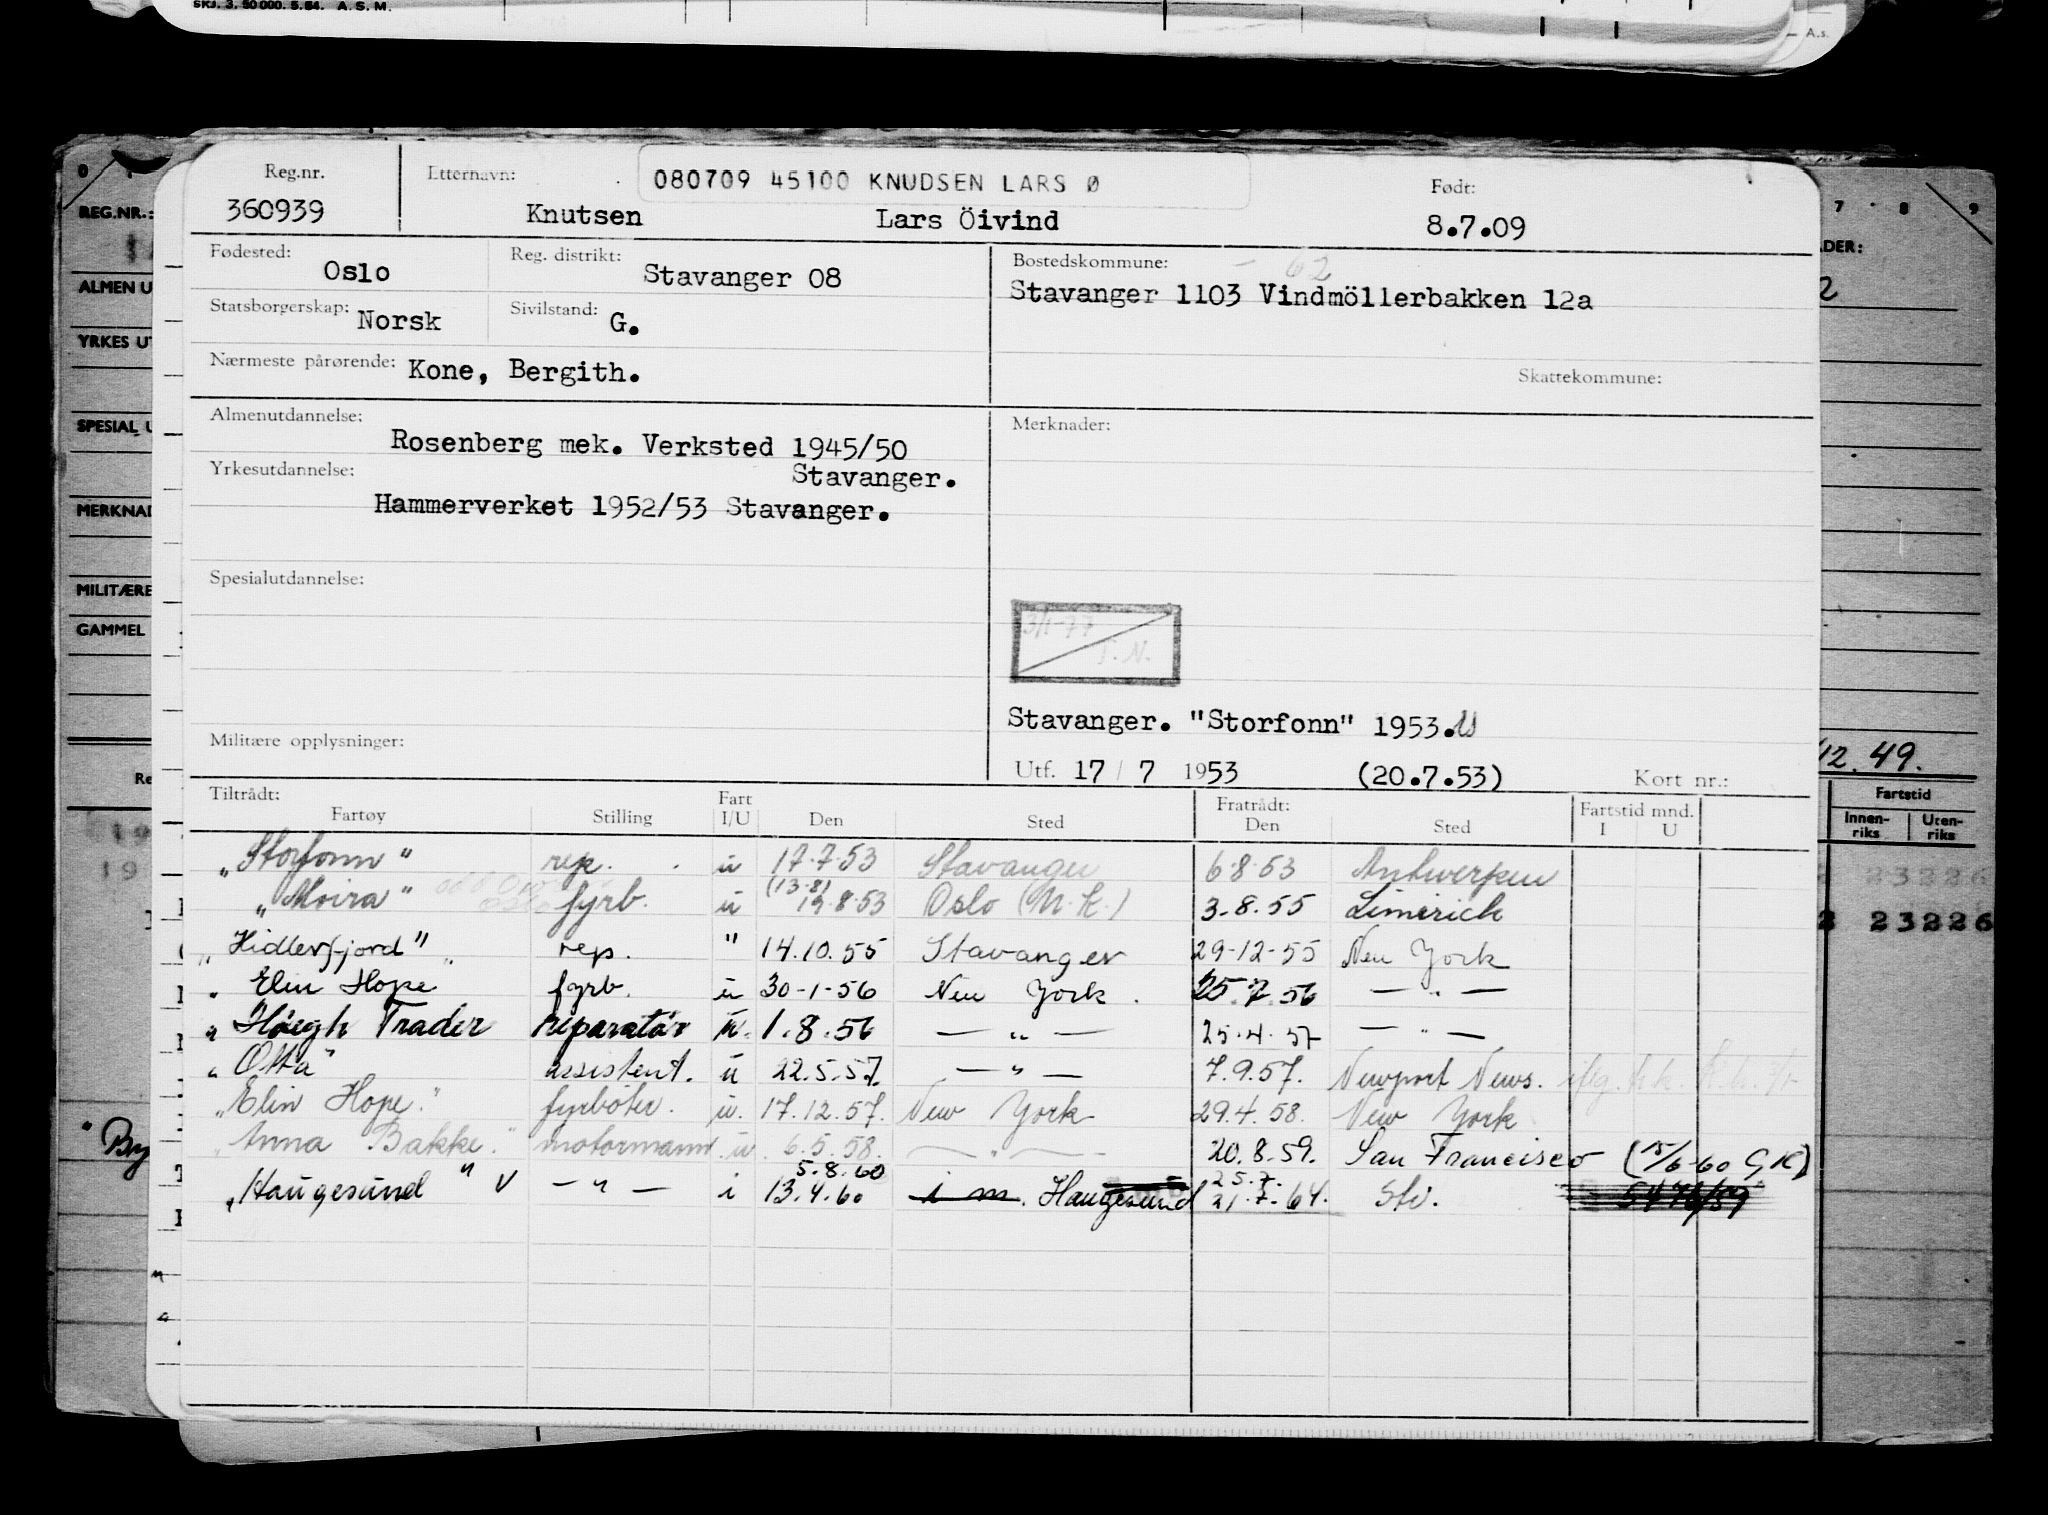 SKJ. 3. 50000. 5.54. A. S. M.
A.s.
Reg.nr. Etternavn: 080709 45100 KNUDSEN LARS Ø Født:
360939 Knutsen Lars Öivind 8.7.09
Fødested: Oslo Reg. distrikt: Stavanger 08 Bostedskommune: - 62
Stavanger 1103 Vindmöllerbakken 12a
Statsborgerskap: Norsk Sivilstand: G.
Nærmeste pårørende: Kone, Bergith. Skattekommune:
Almenutdannelse: Merknader:
Rosenberg mek. Verksted 1945/50
Yrkesutdannelse: Stavanger.
Hammerverket 1952/53 Stavanger.
Spesialutdannelse:
3/1-77
T. N.
Stavanger. "Storfonn" 1953. U
Militære opplysninger: Utf. 17 / 7 1953 (20.7.53) Kort nr.:
Tiltrådt: Fart Fratrådt: Fartstid mnd.
Fartøy Stilling I/U Den Sted Den Sted I U
"Storfonn" rep. u 17.7.53 Stavanger 6.8.53 Antwerpen
"Moira" fyrb. u (13.8) 19.8.53 Oslo (M.K.) 3.8.55 Limerich
"Hidlerfjord" rep. " 14.10.55 Stavanger 29-12-55 New York
" Elin Hope fyrb. u 30-1-56 New York. 25.7.56 — " —
" Höegh Trader reparatør u. 1.8.56 — " — 25.4.57 — " —
" Otta" assistent. u 22.5.57. — " — 7.9.57. Newport News.
"Elin Hope." fyrbøter. u. 17.12.57. New York 29.4.58. New York
"Anna Bakke." motormann u. 6.5.58. — " — 20.8.59. San Francisco (15/6-60 GK)
5.8.60 25.7.
"Haugesund" V — " — i 13.4.60 i m. Haugesund 21.7.64. Sti. 5476/59
REG.NR.:
ALMEN U
YRKES UT
SPESIAL U
MERKNAD
MILITÆRE
GAMMEL
Re
19
19
" Bry
7 8 9
ADER:
2
12.49.
Fartstid
Innen-riks Uten-riks
2 23226
2 23226